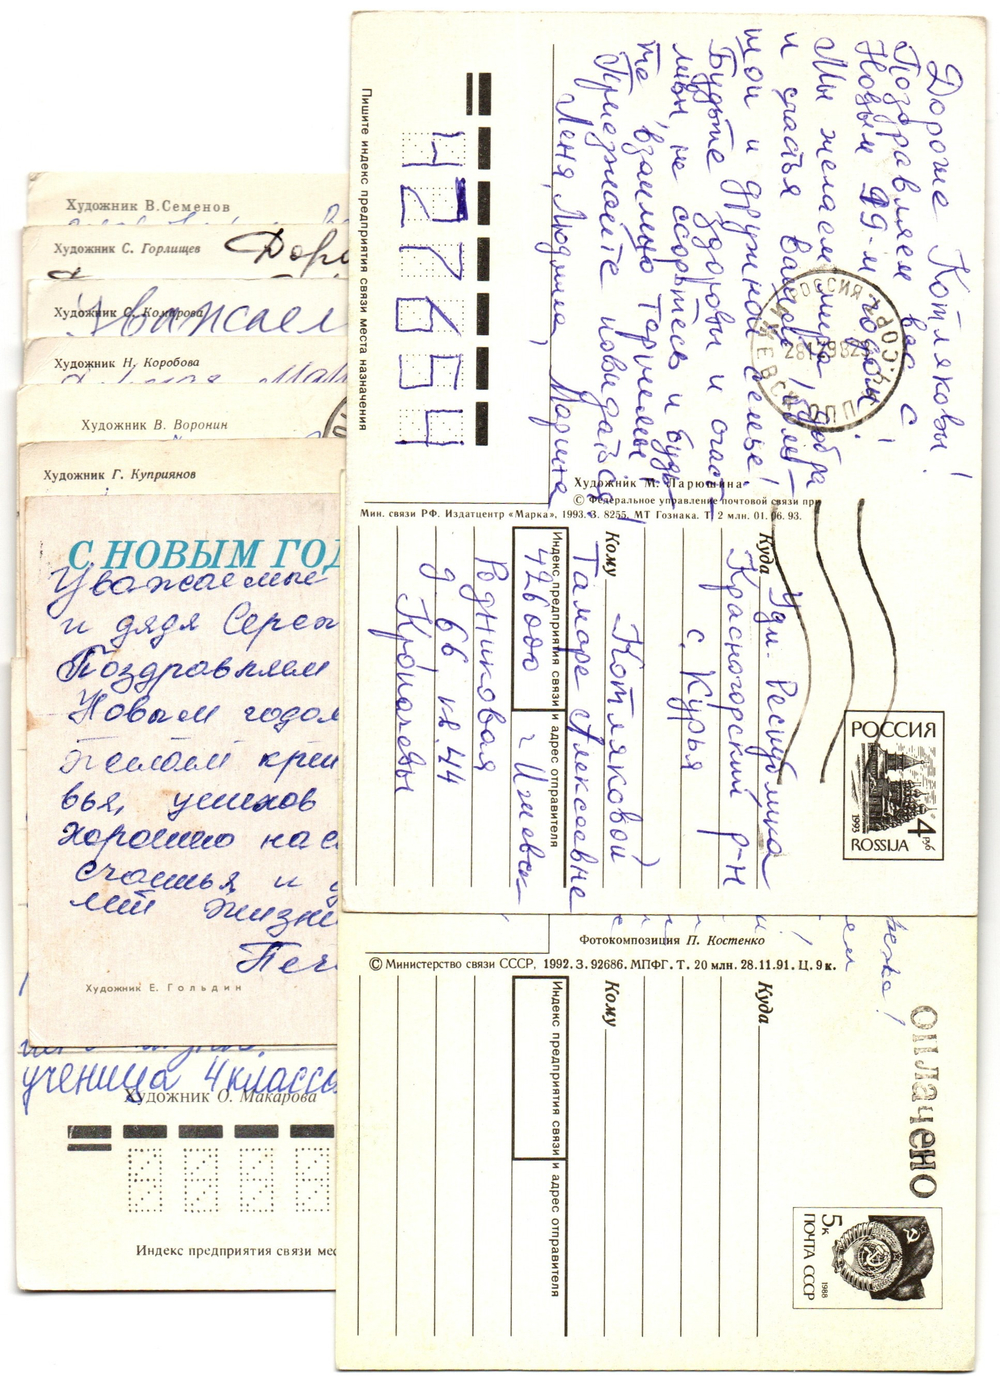 Дорогие Котляковы!
Поздравляем вас с
Новым 99-м годом!
Мы желаем мира, добра
и счастья вашей боль-
шой и дружной семье!
Будьте здоровы и счаст-
ливы, не ссорьтесь и будь-
те взаимно терпимы!
Приезжайте повидаться!
Лёня, Людмила, Марина
РОССИЯ
Пишите индекс предприятия связи места назначения
427654
Художник М. Тарюшина
© Федеральное управление почтовой связи при
Мин. связи РФ. Издатцентр «Марка», 1993. З. 8255. МТ Гознака. Т. 2 млн. 01.06.93.
Куда Удм. Республика
Красногорский р-н
с. Курья
Кому Котляковой
Тамаре Алексеевне
Индекс предприятия связи и адрес отправителя
426000 г Ижевск
Родниковая
д 66 кв. 44
РОССИЯ
1993
4 руб
ROSSIJA
Художник В.Семенов
Художник С. Горлищев
Доро
Художник С. Комарова
Уважаем
Художник Н. Коробова
Художник В. Воронин
Художник Г. Куприянов
С НОВЫМ ГОД
Уважаемые
и дядя Сереж
Поздравляем
Новым годом
Желаем креп
вья, успехов
хорошего нас
счастья и у
жизни
Печ
Художник Е. Гольдин
ученица 4 класса
Художник О. Макарова
Индекс предприятия связи мес
Фотокомпозиция П. Костенко
© Министерство связи СССР, 1992. З. 92686. МПФГ. Т. 20 млн. 28.11.91. Ц. 9 к.
Куда
Кому
Индекс предприятия связи и адрес отправителя
ОПЛАЧЕНО
5к
ПОЧТА СССР
1988